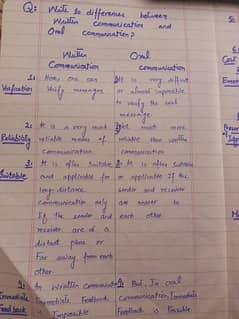 Q: Write to differences between
Written Communication and
Oral Communication?
Written Communication
Oral Communication
1:
Verification
Here, one can
Verify messages
It is very difficult
or almost impossible
to verify the oral
message.
2:
Reliability
It is a very most
reliable means of
communication
most more
reliable than written
communication
3:
Suitable
It is often Suitable
and applicable for
long-distance
communication only
If the sender and
receiver are of a
distant place or
Far away from each
other
3: It is often suitable
or applicable If the
sender and receiver
are nearer to
each other.
4:
Immediate
Feedback
In written communication
Immediate Feedback
Impossible
But, In oral
Communication, Immediate
Feedback is Possible